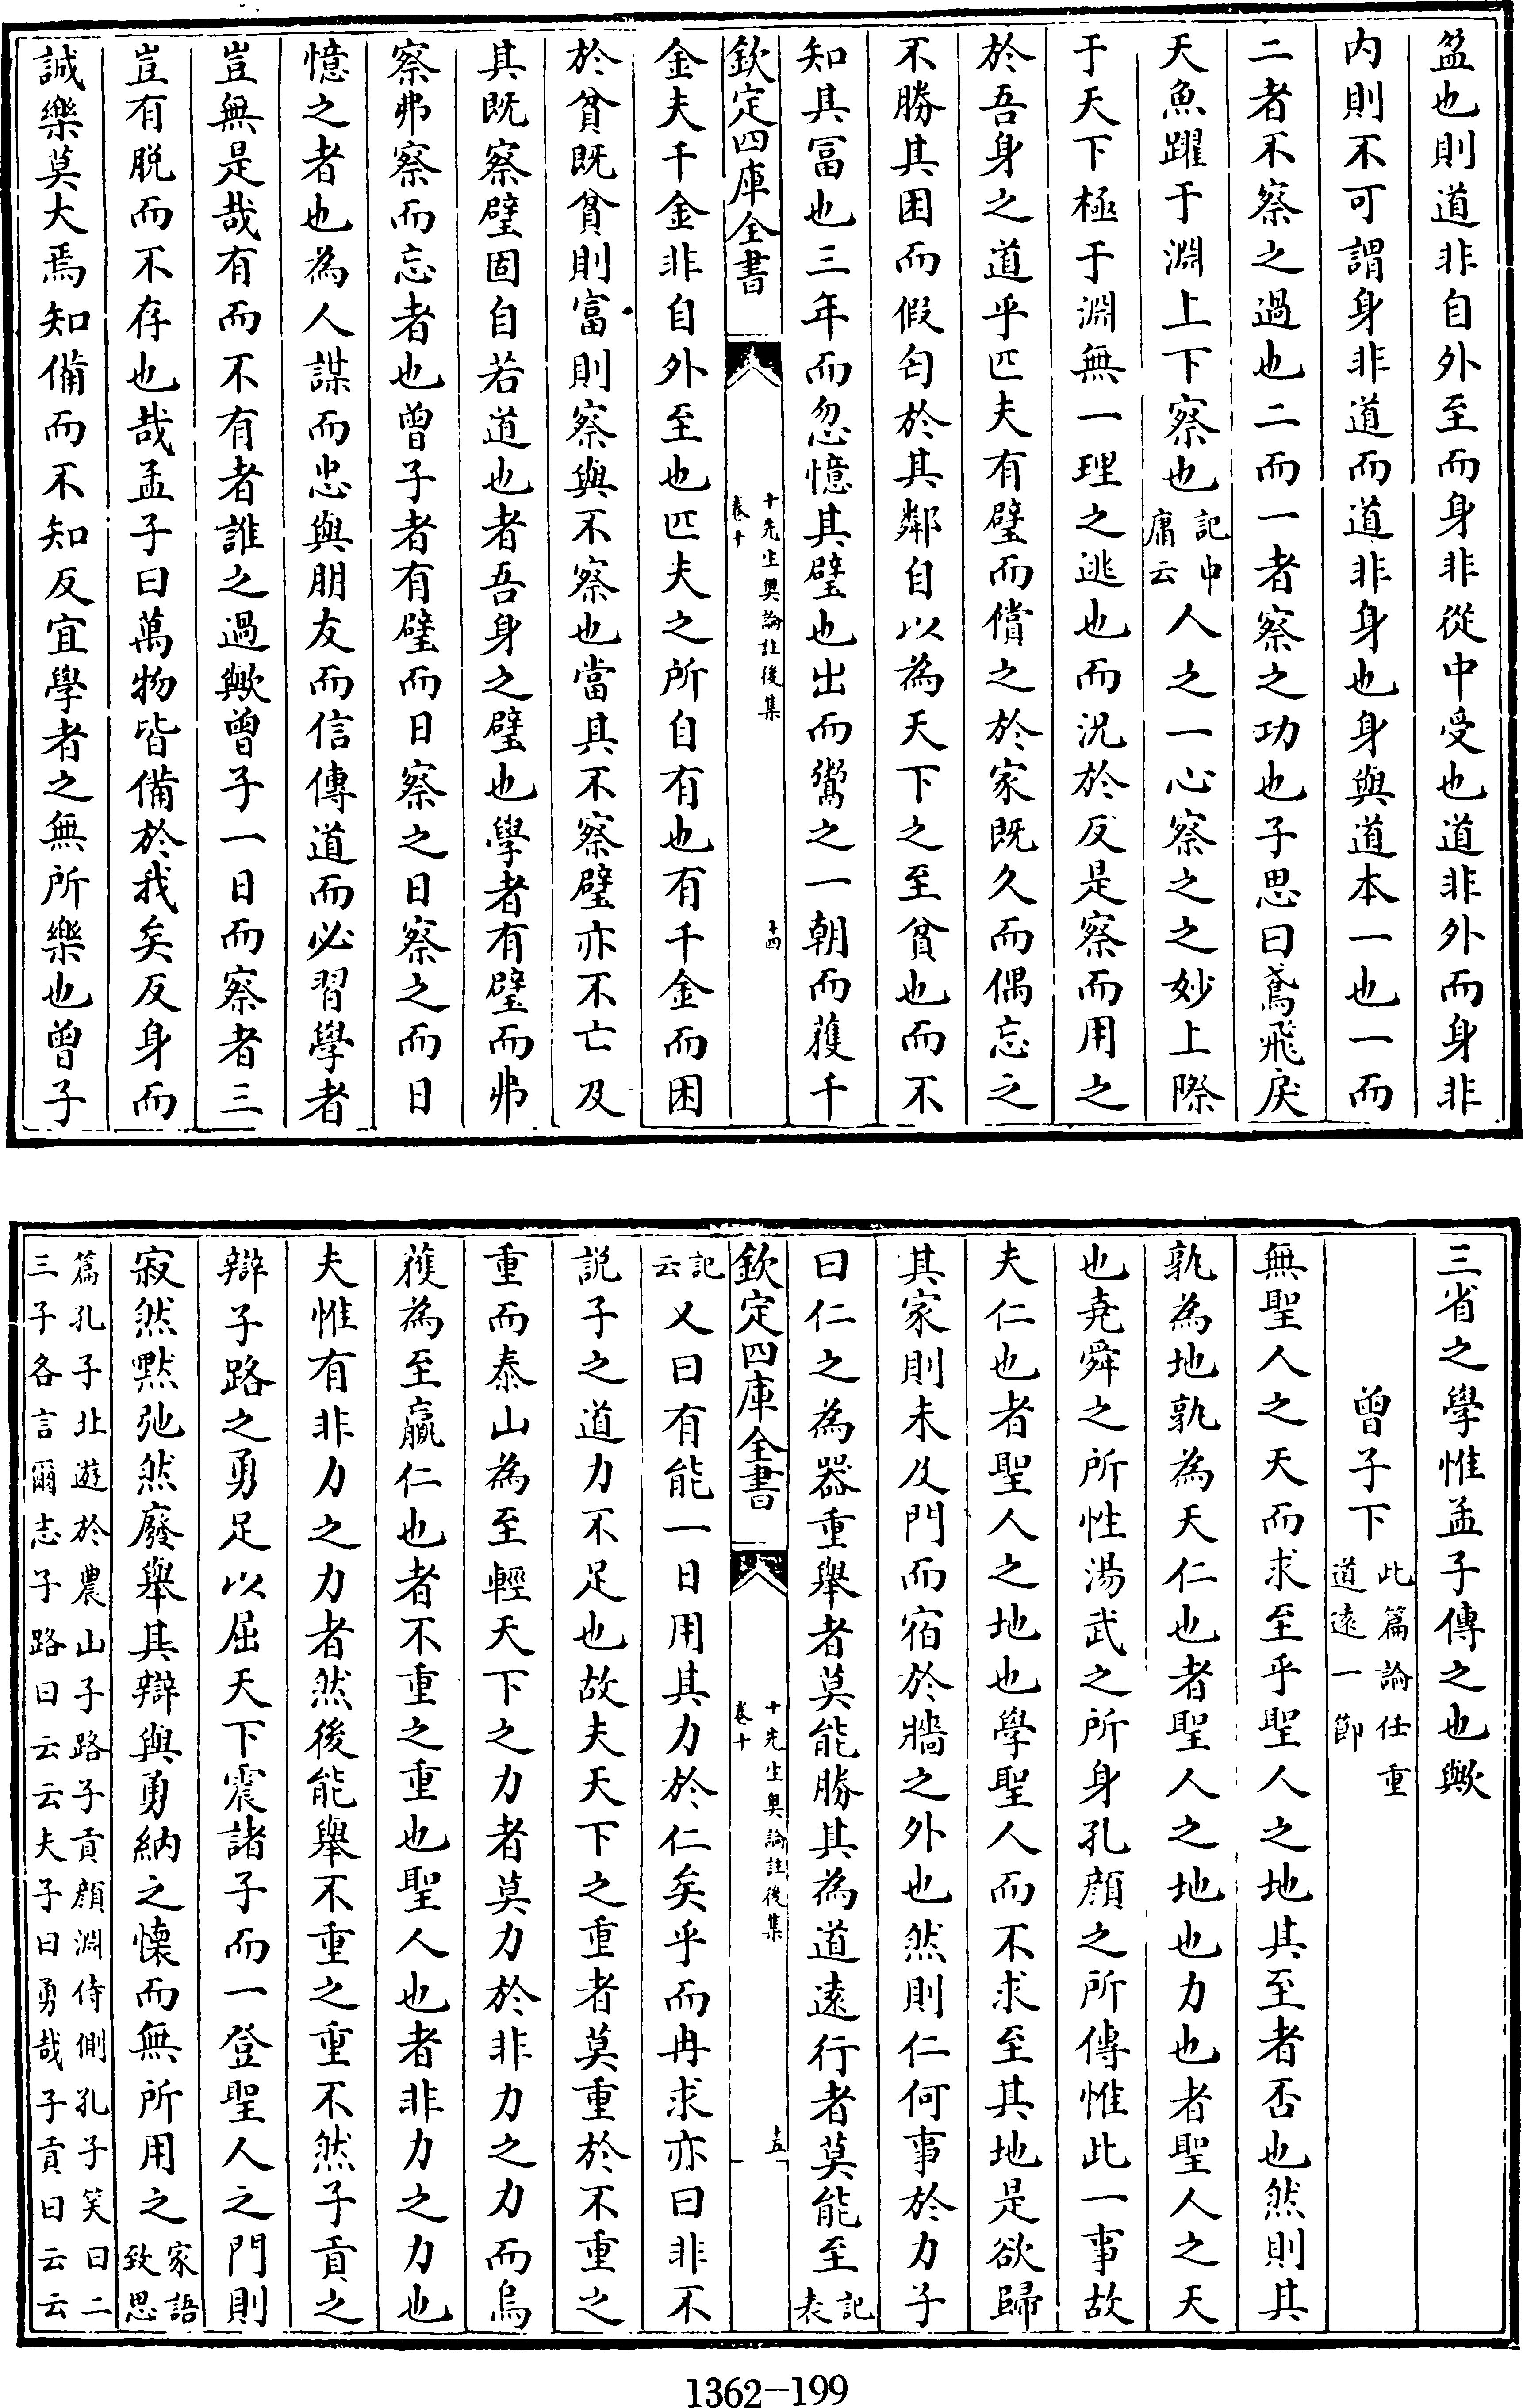 盆也則道非自外至而身非從中受也道非外而身非
内則不可謂身非道而道非身也身與道本一也一而
二者不察之過也二而一者察之功也子思曰鳶飛戾
天魚躍于淵上下察也記中庸云人之一心察之之妙上際
于天下極于淵無一理之逃也而況於反是察而用之
於吾身之道乎匹夫有璧而償之於家既久而偶忘之
不勝其困而假匄於其鄰自以為天下之至貧也而不
知其冨也三年而忽憶其璧也出而鬻之一朝而獲千
欽定四庫全書
十先生奥論註後集
卷十
十四
金夫千金非自外至也匹夫之所自有也有千金而困
於貧既貧則富則察與不察也當其不察璧亦不亡及
其既察璧固自若道也者吾身之璧也學者有璧而弗
察弗察而忘者也曾子者有璧而日察之日察之而日
憶之者也為人謀而忠與朋友而信傳道而必習學者
豈無是哉有而不有者誰之過歟曾子一日而察者三
豈有脱而不存也哉孟子曰萬物皆備於我矣反身而
誠樂莫大焉知備而不知反宜學者之無所樂也曾子
三省之學惟孟子傳之也歟
曾子下此篇論任重道逺一節
無聖人之天而求至乎聖人之地其至者否也然則其
孰為地孰為天仁也者聖人之地也力也者聖人之天
也堯舜之所性湯武之所身孔顔之所傳惟此一事故
夫仁也者聖人之地也學聖人而不求至其地是欲歸
其家則未及門而宿於牆之外也然則仁何事於力子
曰仁之為器重舉者莫能勝其為道逺行者莫能至記表
欽定四庫全書
十先生奥論註後集
卷十
十五
記云又曰有能一日用其力於仁矣乎而冉求亦曰非不
説子之道力不足也故夫天下之重者莫重於不重之
重而泰山為至輕天下之力者莫力於非力之力而烏
獲為至羸仁也者不重之重也聖人也者非力之力也
夫惟有非力之力者然後能舉不重之重不然子貢之
辯子路之勇足以屈天下震諸子而一登聖人之門則
寂然黙弛然廢舉其辯與勇納之懐而無所用之家語致思
篇孔子北遊於農山子路子貢顔淵侍側孔子笑曰二
三子各言爾志子路曰云云夫子曰勇哉子貢曰云云
1362-199